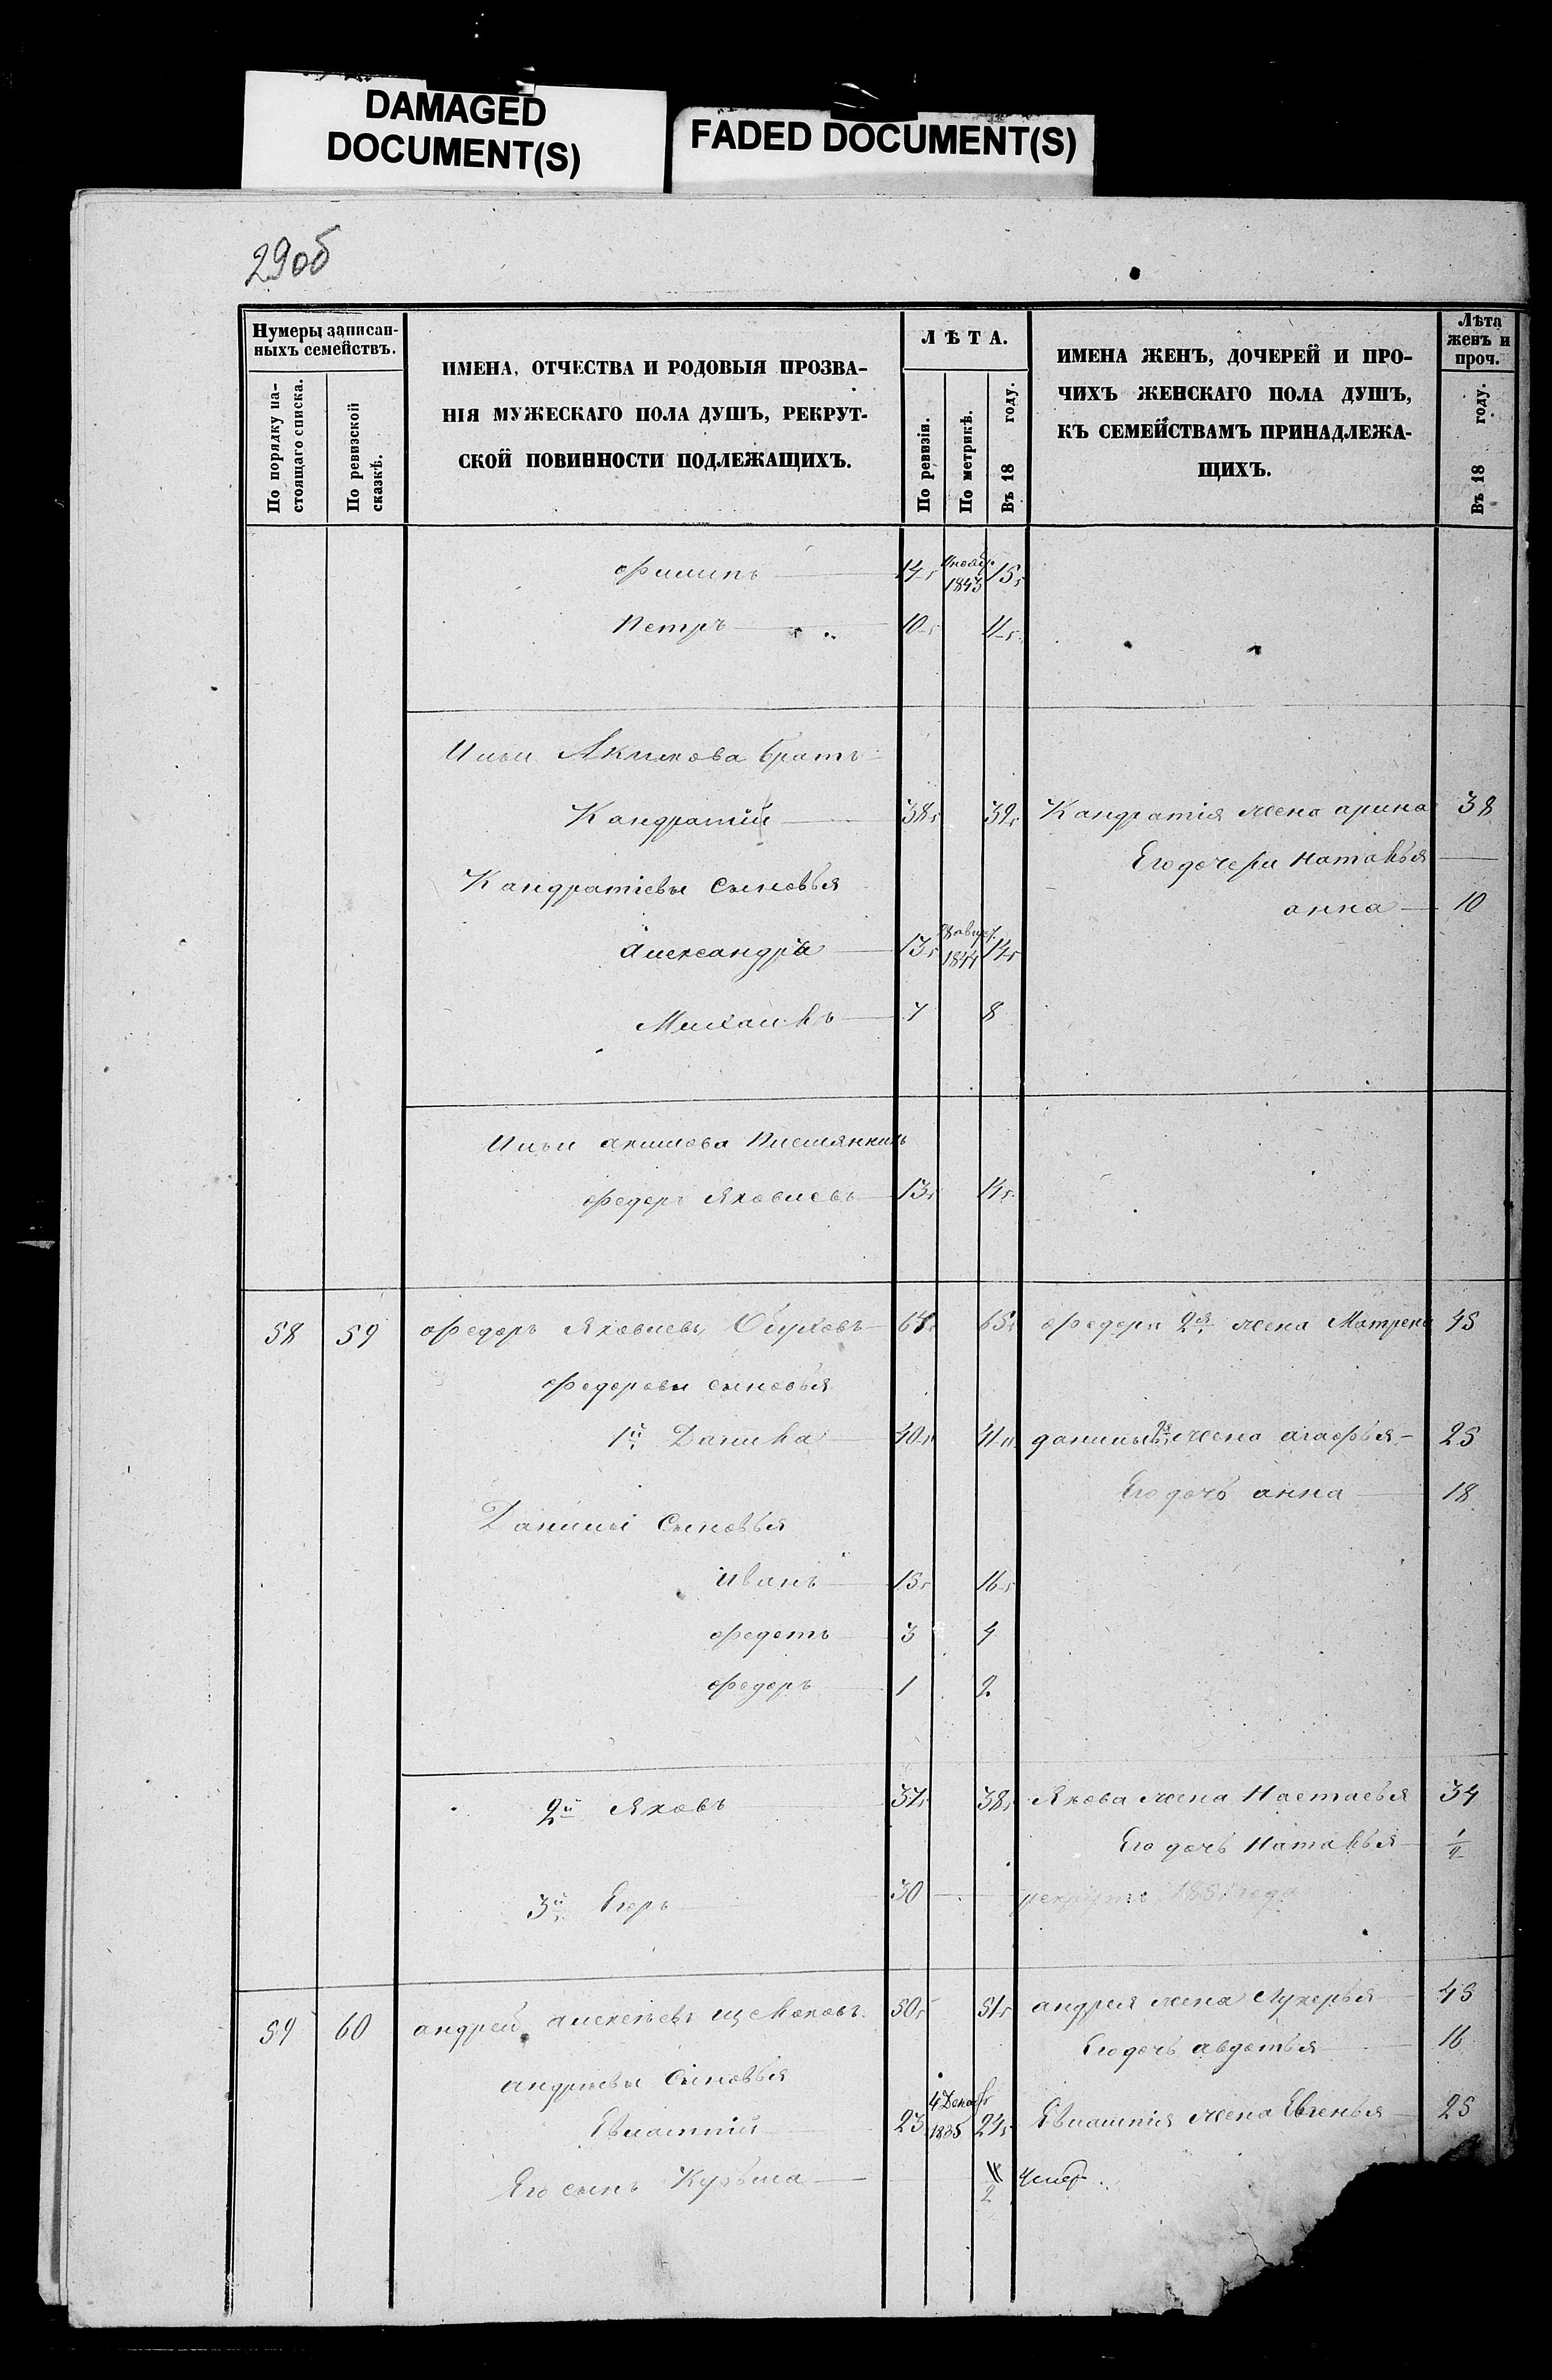 DAMAGED
DOCUMENT(S)
FADED DOCUMENT(S)
29об
Нумеры записан-
ныхъ семействъ.
По порядку на-
стоящаго списка.
По ревизской
сказкѣ.
ИМЕНА, ОТЧЕСТВА И РОДОВЫЯ ПРОЗВА-
НІЯ МУЖЕСКАГО ПОЛА ДУШЪ, РЕКРУТ-
СКОЙ ПОВИННОСТИ ПОДЛЕЖАЩИХЪ.
ЛѢТА.
По ревизіи.
По метрикѣ.
Въ 18 году.
ИМЕНА ЖЕНЪ, ДОЧЕРЕЙ И ПРО-
ЧИХЪ ЖЕНСКАГО ПОЛА ДУШЪ,
КЪ СЕМЕЙСТВАМЪ ПРИНАДЛЕЖА-
ЩИХЪ.
Лѣта
женъ и
проч.
Въ 18 году.
Филипъ 14 1843 15
Петръ 10 11
Ильи Акимова братъ
Кандратій 38 39 Кандратія жена арина 38
Его дочери Наталья
Кандратіевы сыновья
анна 10
Александра 13 1844 14
Михаилъ 7 8
Ильи акимова Племянникъ
Федоръ Яковлевъ 13 14
58 59 Федоръ Яковлевъ Обуховъ 64 65 Федора 2я жена Матрена 45
Федоровы сыновья
1й Данила 40 41 данилы 2я жена агафья 25
Его дочь анна 18
Данилы сыновья
Иванъ 15 16
Федотъ 3 4
Федоръ 1 2
2й Яковъ 37 38 Якова жена Настасья 34
Его дочь Наталья
3й Егоръ 30 рекрутъ 185 года
59 60 андрей алексѣевъ 50 51 андрея жена Лукерья 45
Его дочь авдотья 16
андреевы сыновья
Евлампій 23 4 Декаб 1835 24 Евлампія жена Евгенья 25
Его сынъ Кузьма умер.